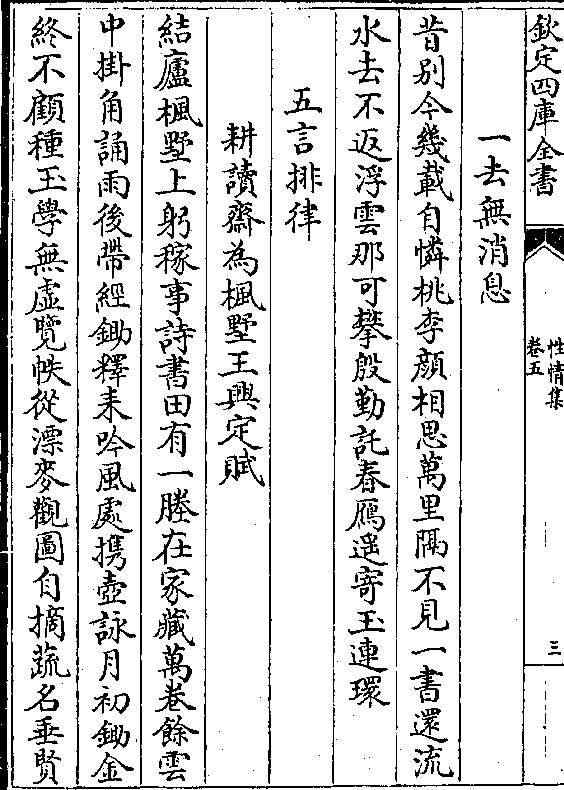 欽定四庫全書
性情集
卷五
三
一去無消息
昔别今幾載自憐桃李顔相思萬里隔不見一書還流
水去不返浮雲那可攀殷勤託春鴈遥寄玉連環
五言排律
耕讀齋為楓墅王興定賦
結廬楓墅上躬稼事詩書田有一塍在家藏萬卷餘雲
中掛角誦雨後帶經鋤釋耒吟風處携壺詠月初鋤金
終不顧種玉學無虛覽帙從漂麥觀圖自摘蔬名垂賢